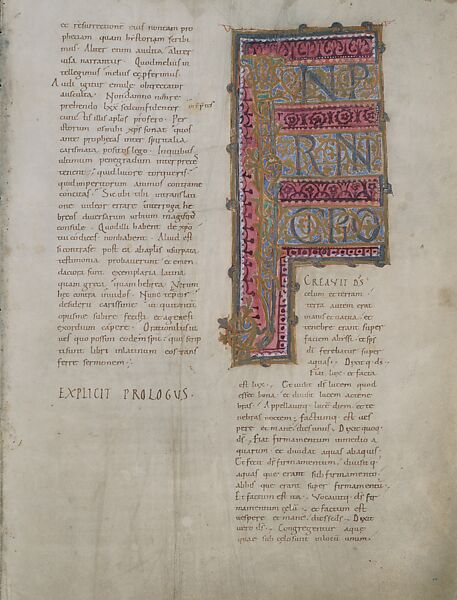 et resurrectione eius non tam pro
phetiam quam hestoriam scribi
mus. Aliter enim audita aliter
uisa narrantur. Quod melius in
tellegimus melius et proferimus.
Audi igitur emule obtrectator
ausculta. Non damno non re
prehendo lxx sed confidenter
cunctis illis
ante prophetas inter spiritalia
carismata positos lego. In quibus
ultimum pene gradum interpretes
tenent. quid liuore torqueris.
quid imperitorum animos contra me
concitas. Sicubi tibi in transla
tione uideor errare interroga he
breos diuersarum urbium magistros
consule. Quod illi habent de xpo
tui codices non habent. Aliud est
si contra se postea ab apostolis usurpata
testimonia probauerunt et emen
datiora sunt exemplaria latina
quam greca quam hebrea. Uerum
hec contra inuidos. Nunc te precor
desideri carissime ut qui tantum
opus me subire fecisti et a genesi
exordium capere. Orationibus iu
ues quo possim eodem spu. quo scrip
ti sunt libri in latinum eos trans
ferre sermonem.
EXPLICIT PROLOGUS.
IN P
RIN
CIPIO
CREAVIT DS
celum et terram
terra autem erat
inanis et uacua. et
tenebre erant super
faciem abyssi. et sps
di ferebatur super
aquas. Dixitq. ds.
Fiat lux. et facta
est lux. Et uidit ds lucem quod
esset bona. et diuisit lucem a tene
bris. Appellauitq. lucem diem et te
nebras noctem. factumq. est ues
pere et mane dies unus. Dixit quoq.
ds. Fiat firmamentum in medio a
quarum. et diuidat aquas ab aquis.
Et fecit ds firmamentum. diuisitq.
aquas que erant sub firmamento.
ab his que erant super firmamentum.
Et factum est ita. Uocauitq. ds fir
mamentum celum. et factum est
uespere et mane. dies scds. Dixit
uero ds. Congregentur aque
que sub celo sunt in locum unum.